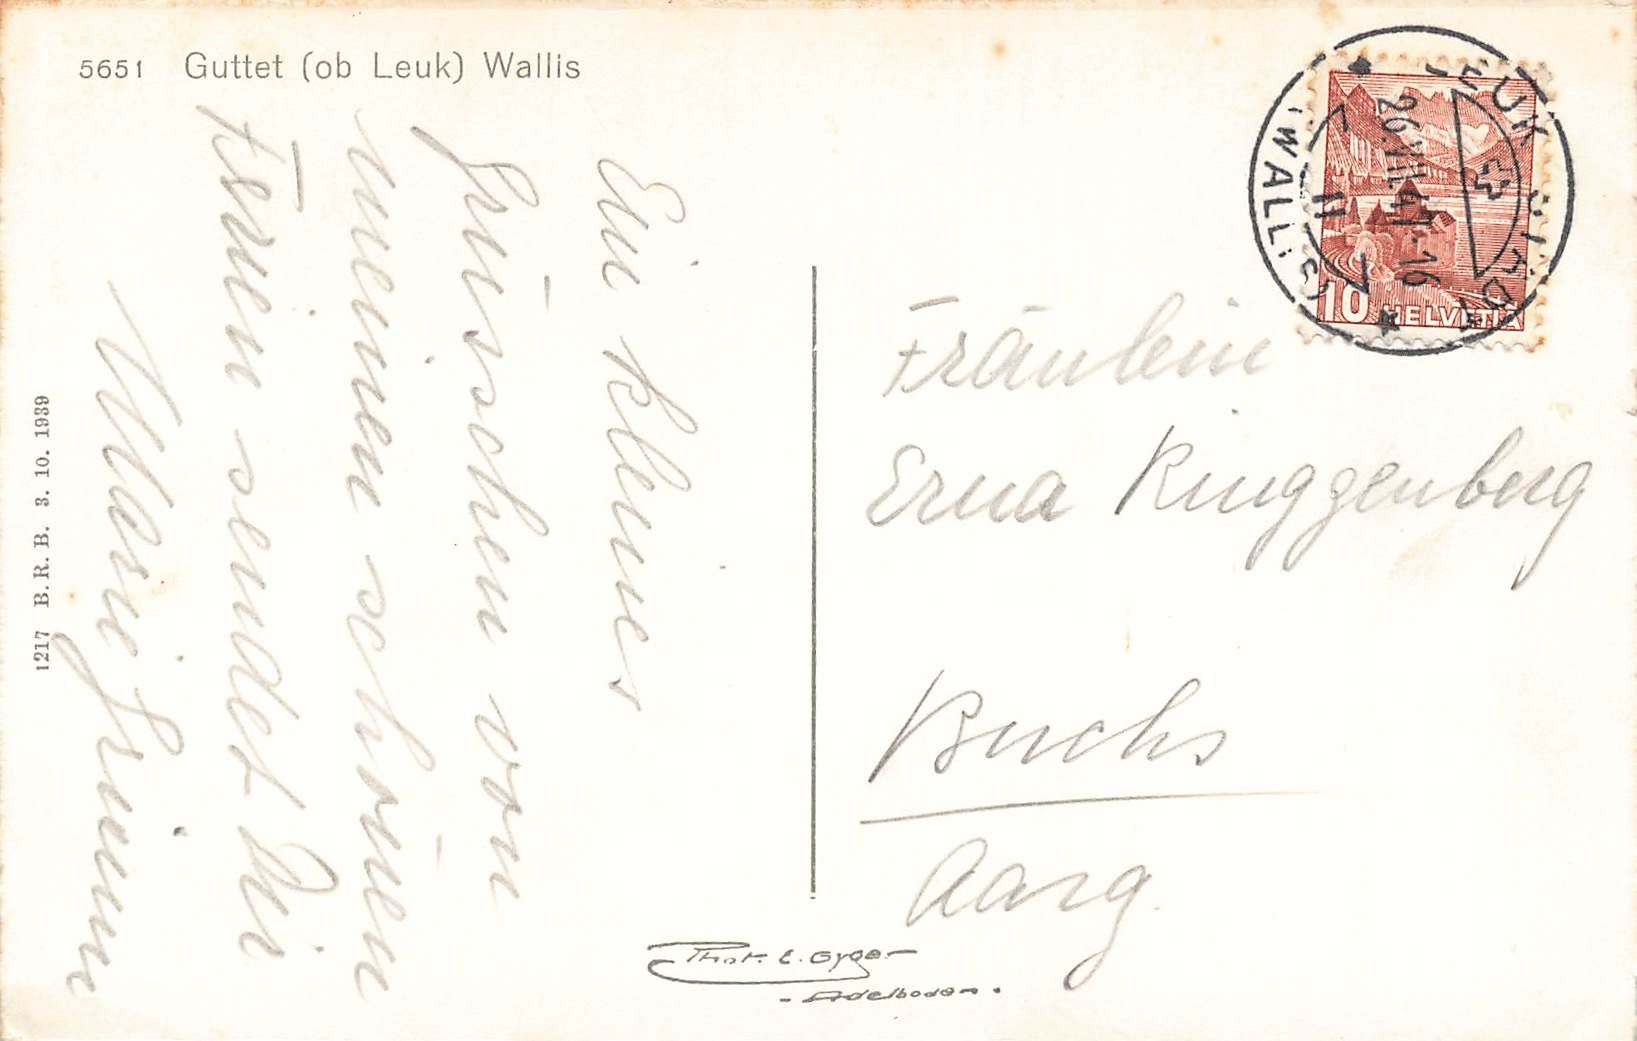 5651 Guttet (ob Leuk) Wallis
Ein kleines
Grüsschen von
meinen schönen
Ferien sendet Dir
Marie Grimm
1217 B.R.B. 3. 10. 1939
Fräulein
Erna Ringgenberg
Buchs
Aarg.
Phot. E. Gyger
- Adelboden .
LEUK
(WALLIS)
26.VII.41-16
11
10 HELVETIA